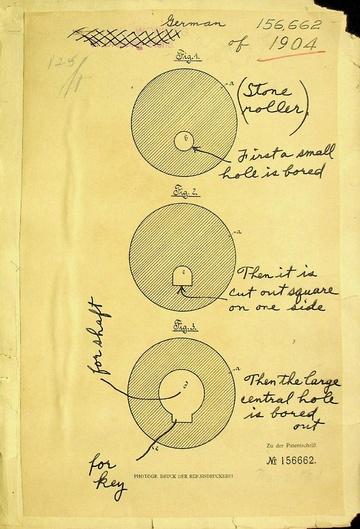 German 156,662
of 1904
Fig. 1.
a
(Stone
roller)
b
First a small
hole is bored
Fig. 2.
a
c
Then it is
cut out square
on one side
for shaft
Fig. 3.
a
Then the large
central hole
is bored
out
for
key
Zu der Patentschrift
№ 156662.
PHOTOGR. DRUCK DER REICHSDRUCKEREI